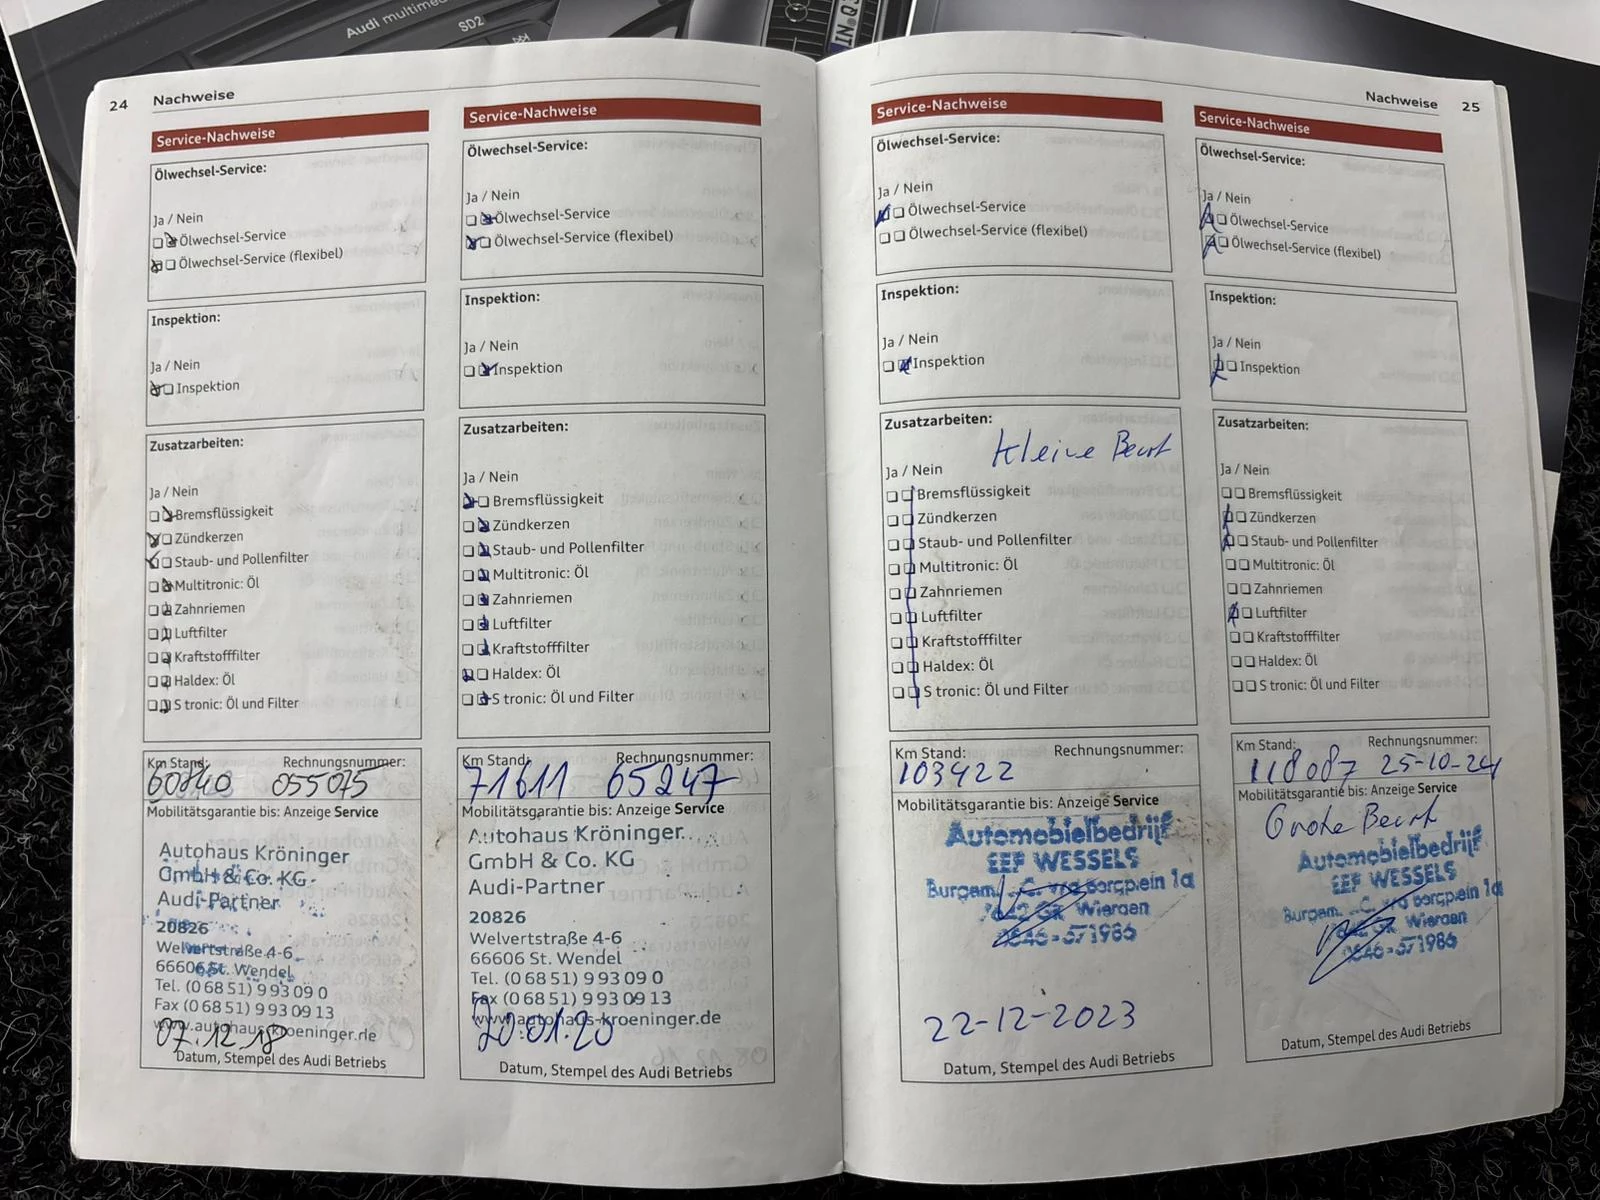 Audi multime
SD2
24 Nachweise
Service-Nachweise
Ölwechsel-Service:
Ja / Nein
Ölwechsel-Service
Ölwechsel-Service (flexibel)
Inspektion:
Ja / Nein
Inspektion
Zusatzarbeiten:
Ja / Nein
Bremsflüssigkeit
Zündkerzen
Staub- und Pollenfilter
Multitronic: Öl
Zahnriemen
Luftfilter
Kraftstofffilter
Haldex: Öl
S tronic: Öl und Filter
Km Stand: Rechnungsnummer:
60840 055075
Mobilitätsgarantie bis: Anzeige Service
Autohaus Kröninger
GmbH & Co. KG
Audi-Partner
20826
Welvertstraße 4-6
66606 St. Wendel
Tel. (0 68 51) 9 93 09 0
Fax (0 68 51) 9 93 09 13
www.autohaus-kroeninger.de
07.12.18
Datum, Stempel des Audi Betriebs
Service-Nachweise
Ölwechsel-Service:
Ja / Nein
Ölwechsel-Service
Ölwechsel-Service (flexibel)
Inspektion:
Ja / Nein
Inspektion
Zusatzarbeiten:
Ja / Nein
Bremsflüssigkeit
Zündkerzen
Staub- und Pollenfilter
Multitronic: Öl
Zahnriemen
Luftfilter
Kraftstofffilter
Haldex: Öl
S tronic: Öl und Filter
Km Stand: Rechnungsnummer:
71611 65247
Mobilitätsgarantie bis: Anzeige Service
Autohaus Kröninger
GmbH & Co. KG
Audi-Partner
20826
Welvertstraße 4-6
66606 St. Wendel
Tel. (0 68 51) 9 93 09 0
Fax (0 68 51) 9 93 09 13
www.autohaus-kroeninger.de
20.01.20
Datum, Stempel des Audi Betriebs
Nachweise 25
Service-Nachweise
Ölwechsel-Service:
Ja / Nein
Ölwechsel-Service
Ölwechsel-Service (flexibel)
Inspektion:
Ja / Nein
Inspektion
Zusatzarbeiten:
Kleine Beurt
Ja / Nein
Bremsflüssigkeit
Zündkerzen
Staub- und Pollenfilter
Multitronic: Öl
Zahnriemen
Luftfilter
Kraftstofffilter
Haldex: Öl
S tronic: Öl und Filter
Km Stand: Rechnungsnummer:
103422
Mobilitätsgarantie bis: Anzeige Service
Automobielbedrijf
EEF WESSELS
Burgem. J.C. vrd Bergplein 1a
7642 GR Wierden
0546-571986
22-12-2023
Datum, Stempel des Audi Betriebs
Service-Nachweise
Ölwechsel-Service:
Ja / Nein
Ölwechsel-Service
Ölwechsel-Service (flexibel)
Inspektion:
Ja / Nein
Inspektion
Zusatzarbeiten:
Ja / Nein
Bremsflüssigkeit
Zündkerzen
Staub- und Pollenfilter
Multitronic: Öl
Zahnriemen
Luftfilter
Kraftstofffilter
Haldex: Öl
S tronic: Öl und Filter
Km Stand: Rechnungsnummer:
118087 25-10-24
Mobilitätsgarantie bis: Anzeige Service
Grote Beurt
Automobielbedrijf
EEF WESSELS
Burgem. vrd Bergplein 1a
GR Wierden
0546-571986
Datum, Stempel des Audi Betriebs